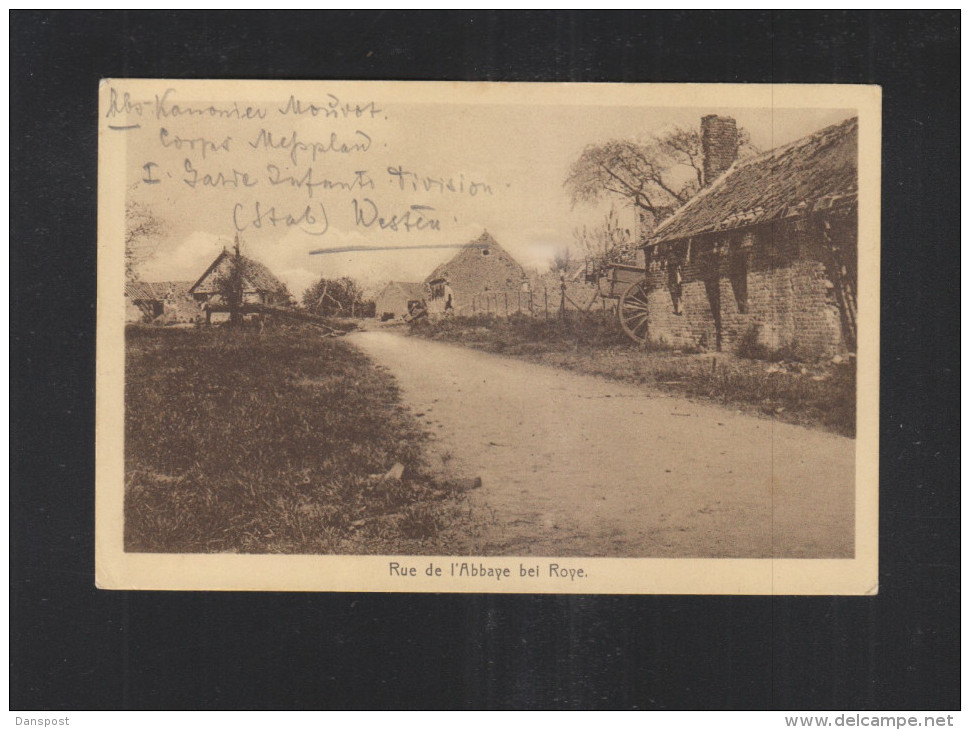 Abs. Kanonier Mouvot.
Corps Messplan.
I. Garde Infant. Division.
(Stab) Westen.
Rue de l'Abbaye bei Roye.
Danspost
www.delcampe.net